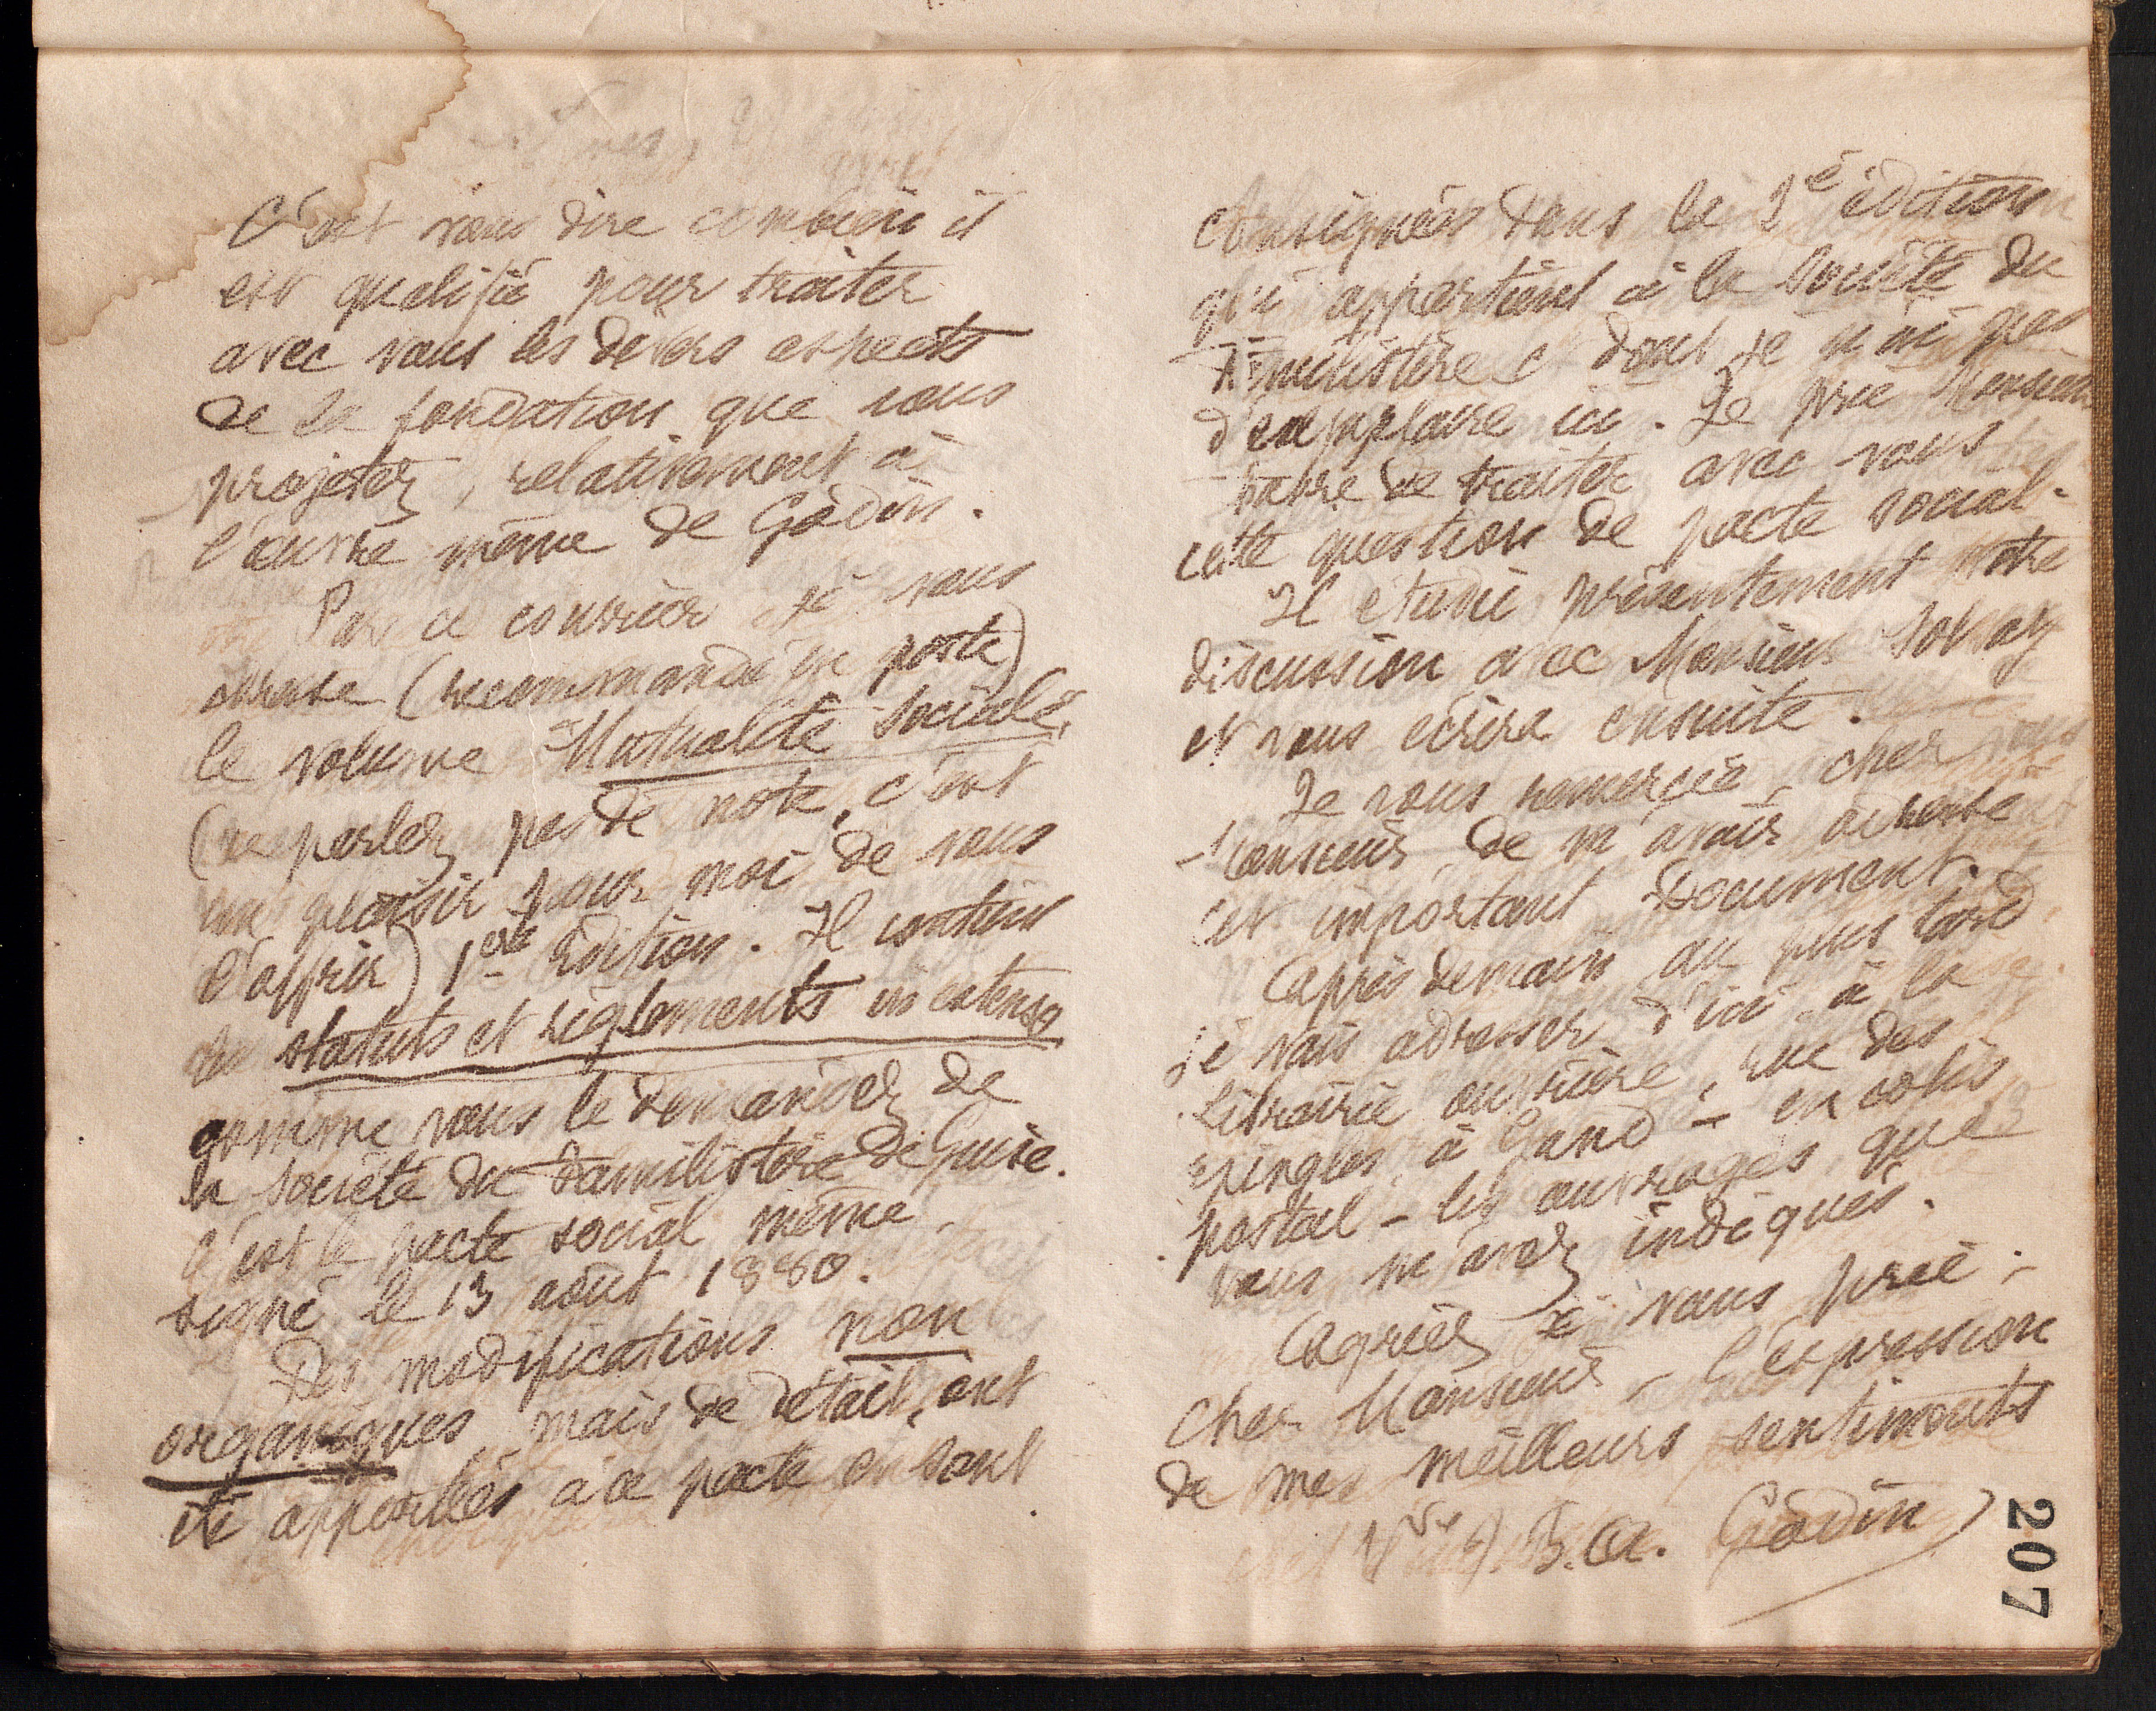 C'est vous dire combien il
est qualifié pour traiter
avec vous les divers aspects
de la fondation que vous
projetez, relativement à
l'œuvre même de Godin.
Par ce courrier je vous
adresse (recommandé en poste)
le volume "Mutualité Sociale"
(ne parlez pas de note, c'est
un plaisir pour moi de vous
l'offrir) 1ère édition. Il contient
les statuts et règlements in extenso
comme vous le demandez de
la Société du Familistère de Guise.
C'est le pacte social même
signé le 13 août 1880.
Des modifications non
organiques, mais de détail, ont
été apportées à ce pacte et sont
consignées dans la 2e édition
qui appartient à la Société du
Familistère & dont je n'ai pas
d'exemplaire ici. Je prie Monsieur
de traiter avec vous
cette question de pacte social.
Il étudie présentement notre
discussion avec Monsieur Solvay
et vous écrira ensuite.
Je vous remercie, cher
Monsieur, de m'avoir adressé
cet important document.
Après demain au plus tard
je vais adresser d'ici à la
Librairie ouvrière, rue des
épingles à Gand – en colis
postal – les ouvrages que
vous m'avez indiqués.
Agréez je vous prie,
cher Monsieur, l'expression
de mes meilleurs sentiments
Vve J. B. A. Godin
207